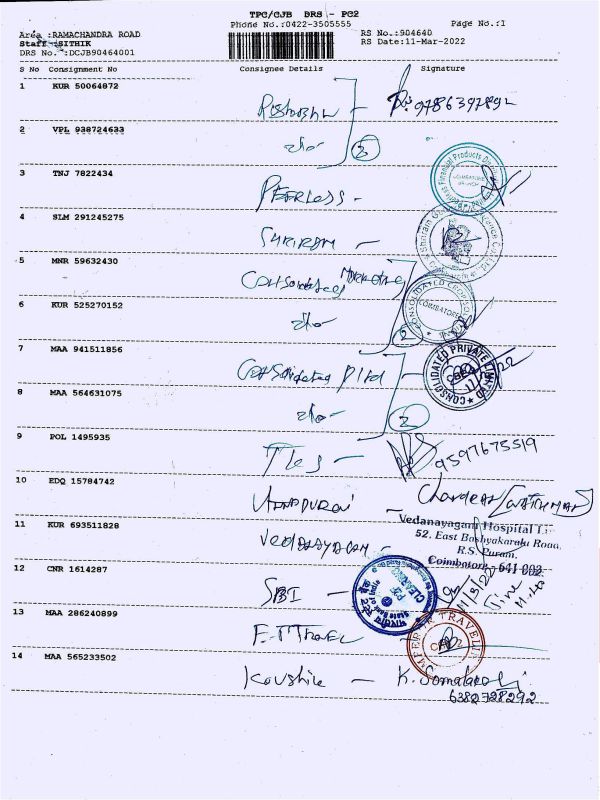 TPC/CJB DRS - PC2
Phone No.:0422-3505555
Page No.:1
Area :RAMACHANDRA ROAD
Staff :SITHIK
DRS No. :DCJB90464001
RS No.:904640
RS Date:11-Mar-2022
S No Consignment No Consignee Details Signature
1 KUR 50064872
9786397892
2 VPL 938724633
2
3 TNJ 7822434
PEERLESS -
4 SLM 291245275
SHRIRAM -
5 MNR 59632430
Consolidated Marketing
6 KUR 525270152
CONSOLIDATED
COIMBATORE
2
7 MAA 941511856
Consolidated P ltd
CONSOLIDATED PRIVATE LIMITED
8 MAA 564631075
2
9 POL 1495935
9597675519
10 EDQ 15784742
Annadurai -
11 KUR 693511828
Vedanayagam -
Vedanayagam Hospital
52, East Bashyakaralu Road,
R.S. Puram,
Coimbatore - 641 002.
12 CNR 1614287
SBI -
Time
13 MAA 286240899
E.T Travel
14 MAA 565233502
Koushik -
6382728292